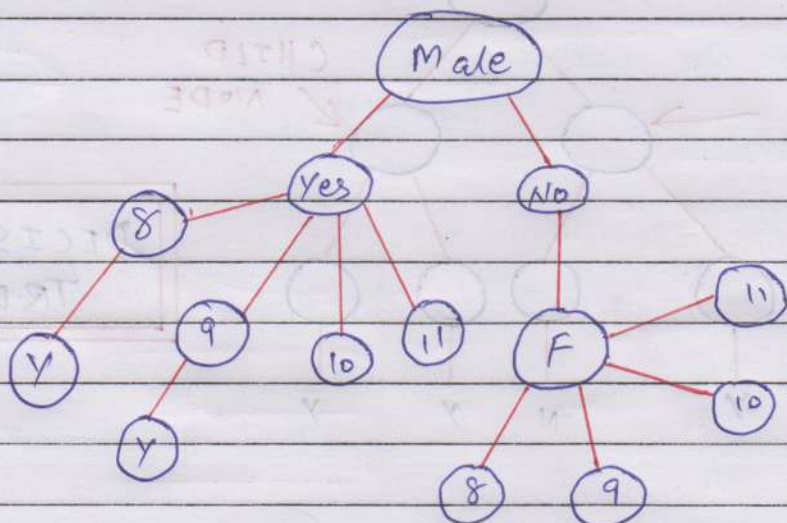 Male
Yes
No
8
9
10
11
F
11
Y
10
Y
8
9